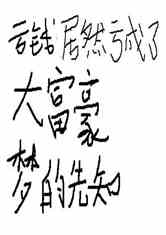 亏钱居然亏成了
大富豪
梦的先知